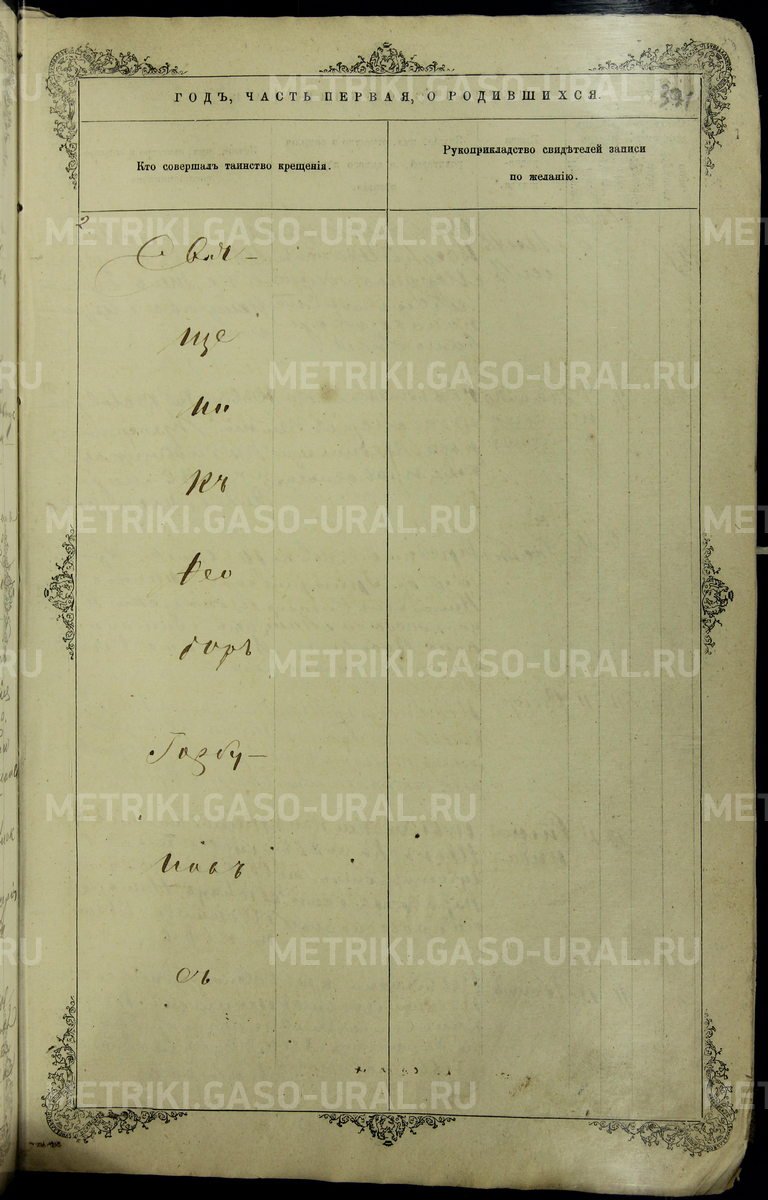 ГОДЪ, ЧАСТЬ ПЕРВАЯ, О РОДИВШИХСЯ.
391
Кто совершалъ таинство крещенія.
Рукоприкладство свидѣтелей записи
по желанію.
2
Свя-
ще
ни
къ
Ѳео
доръ
METRIKI.GASO-URAL.RU